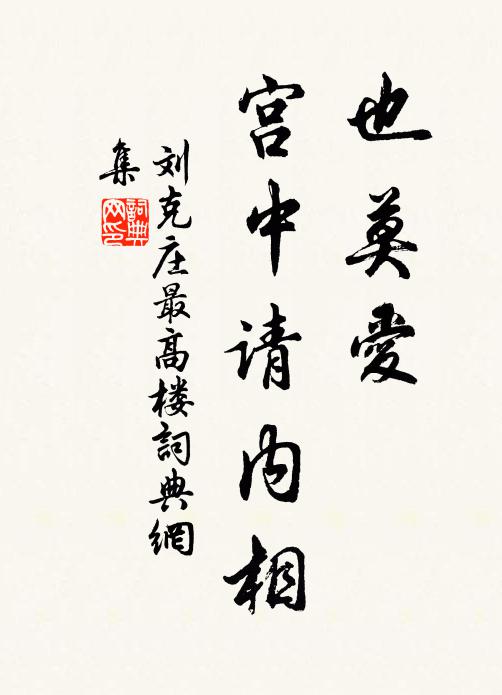 也莫愛
宫中请内相
刘克庄最高楼詞典網
集
詞典
网印